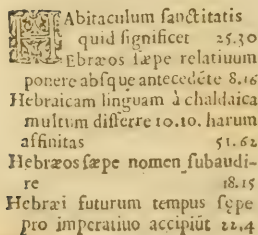 HAbitaculum ſanctitatis
quid ſignificet 25.30
HEbræos ſæpe relatiuum
ponere abſque antecedẽte 8.16
Hebraicam linguam à chaldaica
multum differre 10.10. harum
affinitas 51.62
Hebræos ſæpe nomen ſubaudi-
re 18.15
Hebræi futurum tempus ſępe
pro imperatiuo accipiũt 22,4